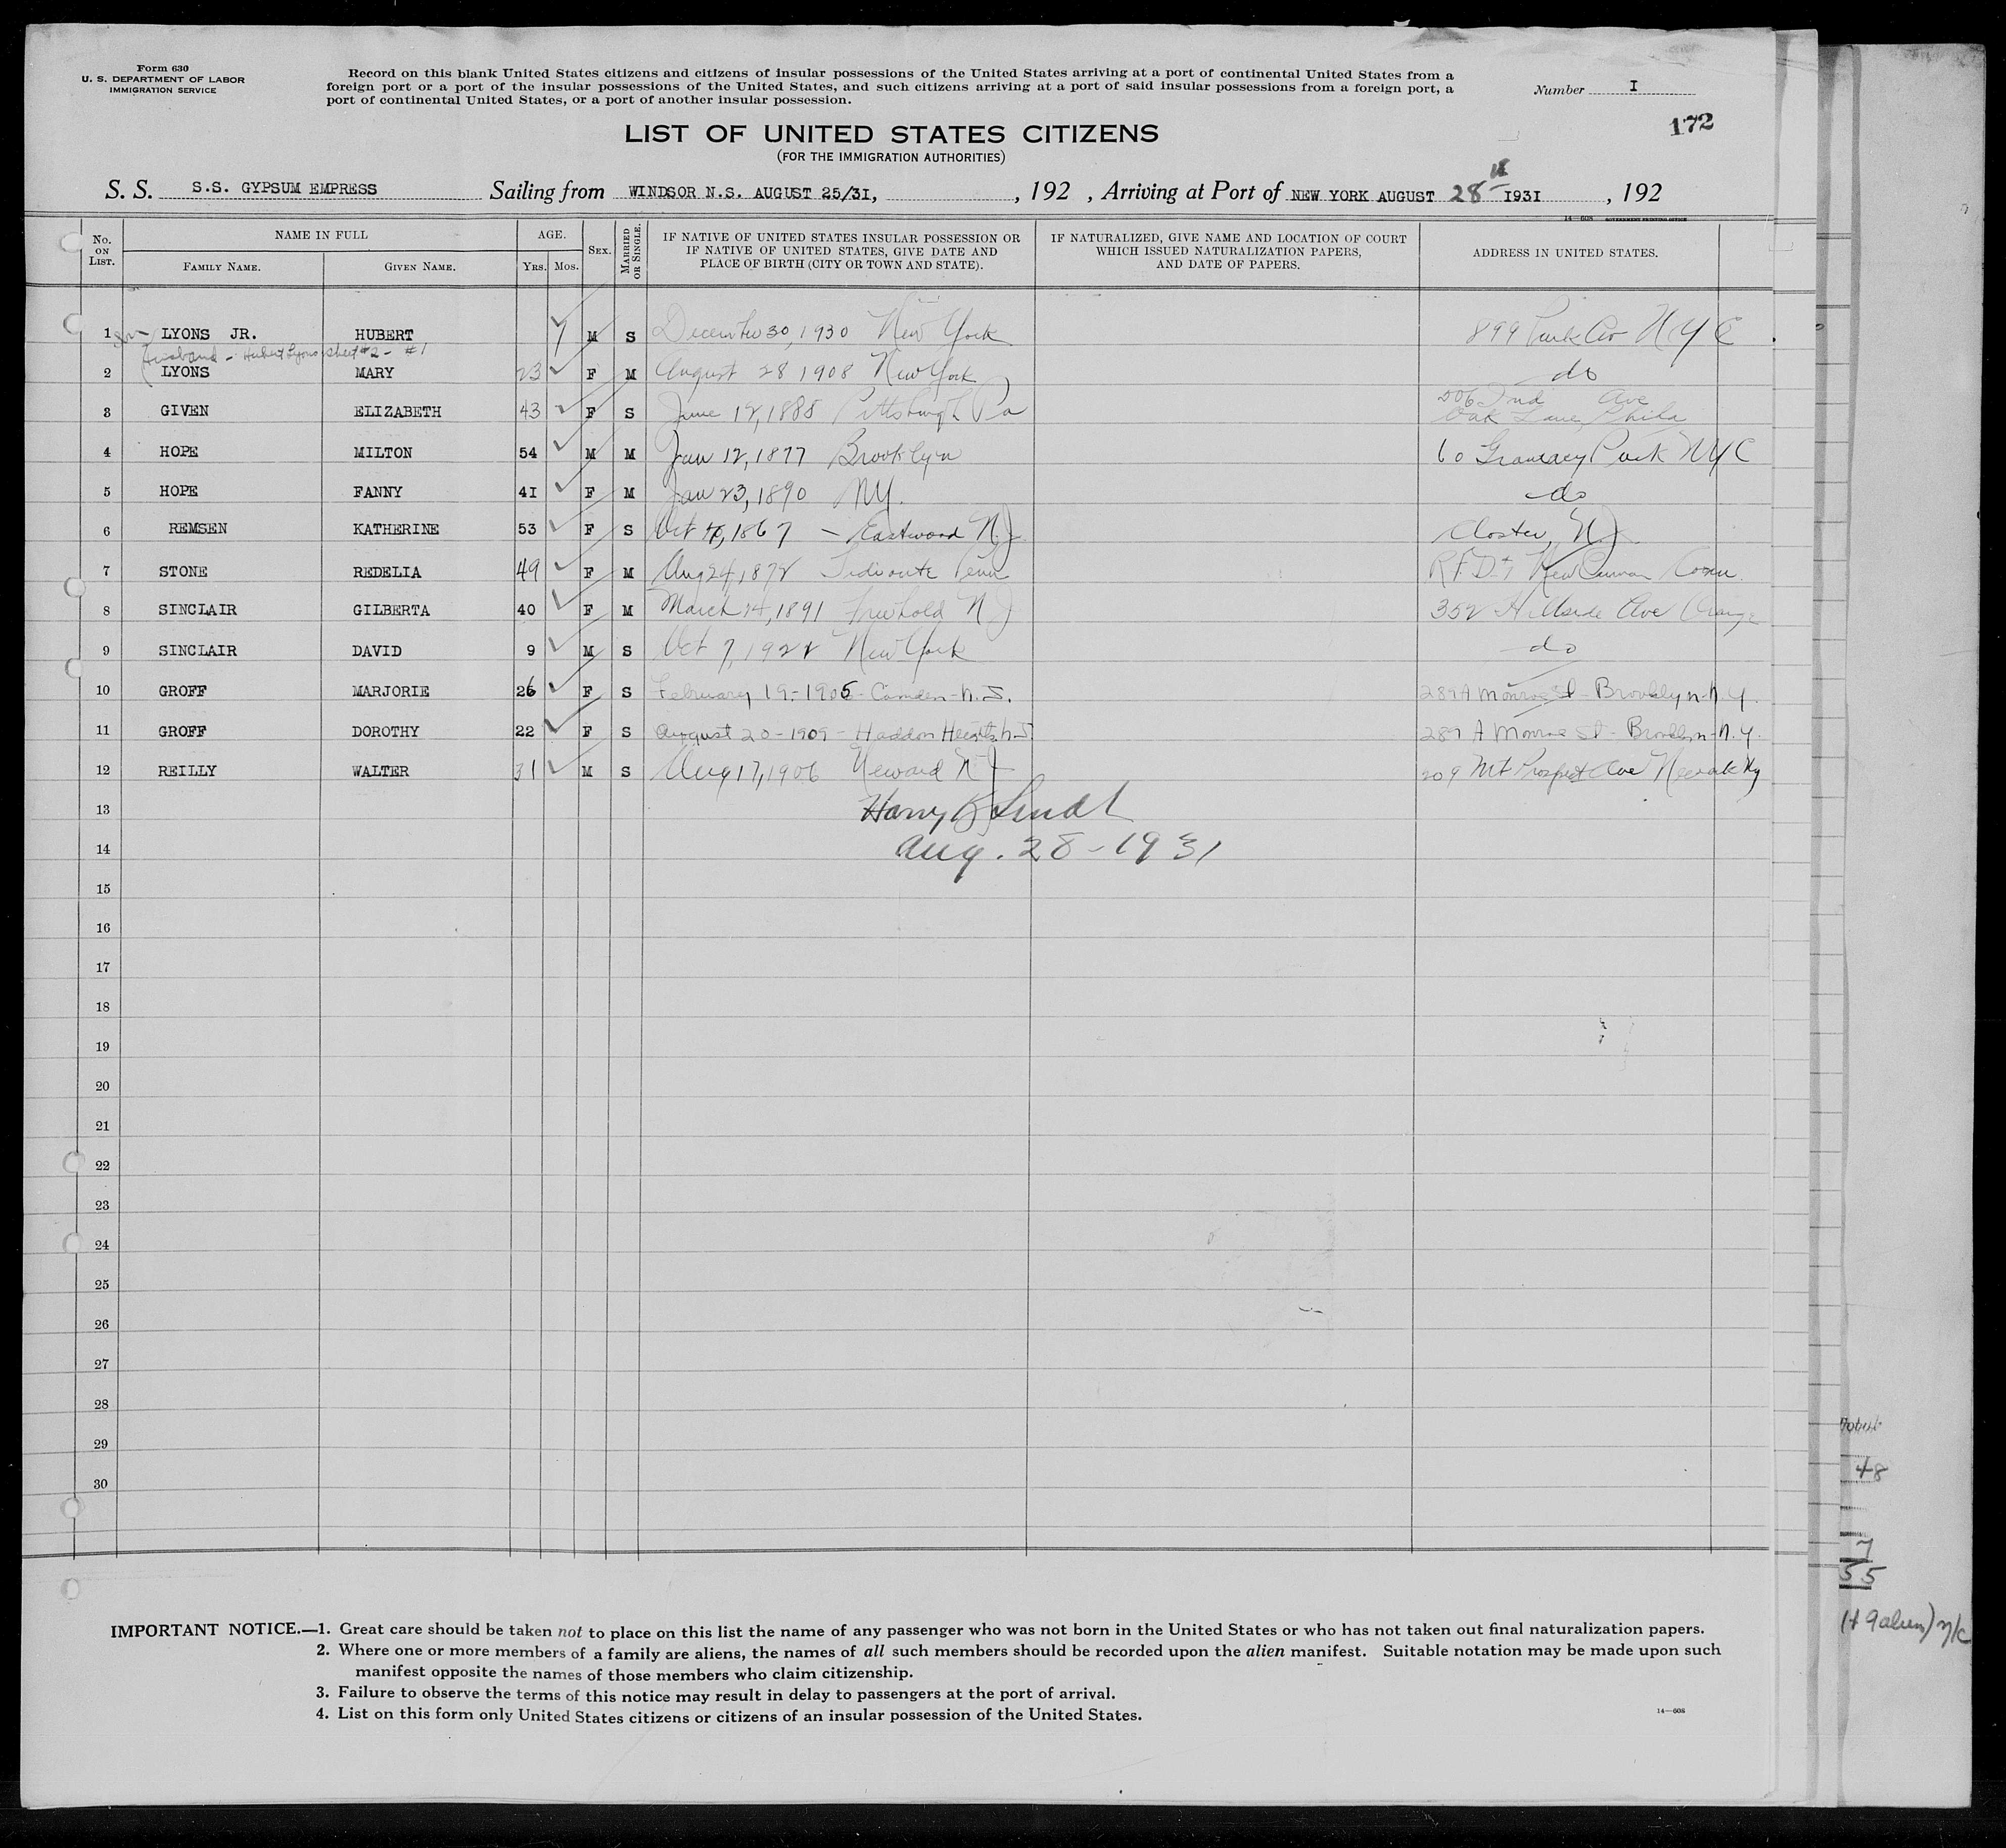 Form 630
U. S. DEPARTMENT OF LABOR
IMMIGRATION SERVICE
Record on this blank United States citizens and citizens of insular possessions of the United States arriving at a port of continental United States from a
foreign port or a port of the insular possessions of the United States, and such citizens arriving at a port of said insular possessions from a foreign port, a
port of continental United States, or a port of another insular possession.
Number I
172
LIST OF UNITED STATES CITIZENS
(FOR THE IMMIGRATION AUTHORITIES)
S. S. S.S. GYPSUM EMPRESS Sailing from WINDSOR N.S. AUGUST 25/31, , 192 , Arriving at Port of NEW YORK AUGUST 28 1931 , 192
14—608 GOVERNMENT PRINTING OFFICE
No. ON LIST. NAME IN FULL FAMILY NAME. GIVEN NAME. AGE. YRS. MOS. SEX. MARRIED OR SINGLE. IF NATIVE OF UNITED STATES INSULAR POSSESSION OR IF NATIVE OF UNITED STATES, GIVE DATE AND PLACE OF BIRTH (CITY OR TOWN AND STATE). IF NATURALIZED, GIVE NAME AND LOCATION OF COURT WHICH ISSUED NATURALIZATION PAPERS, AND DATE OF PAPERS. ADDRESS IN UNITED STATES.
1 LYONS JR. HUBERT 7 M S December 30, 1930 New York 899 Park Av N Y C
Husband - Hubert Lyons sheet #2 - #1
2 LYONS MARY 23 F M August 28 1908 New York do
3 GIVEN ELIZABETH 43 F S June 12, 1888 Pittsburgh Pa 506 2nd Ave
Oak Lane, Phila
4 HOPE MILTON 54 M M Jan 12, 1877 Brooklyn 60 Gramacy Park NYC
5 HOPE FANNY 41 F M Jan 23, 1890 NY. do
6 REMSEN KATHERINE 53 F S Oct 1867 - Eastwood N.J Closter, N.J.
7 STONE REDELIA 49 F M Aug 24, 1872 Tidioute Penn R.F.D. New Canaan Conn.
8 SINCLAIR GILBERTA 40 F M March 24, 1891 Freehold N J 352 Hillside Ave Orange
9 SINCLAIR DAVID 9 M S Oct 7, 1922 New York do
10 GROFF MARJORIE 26 F S February 19-1905 - Camden - N.J. 289A Monroe St - Brooklyn - N.Y.
11 GROFF DOROTHY 22 F S August 20-1909 - Haddon Heights N.J 289 A Monroe St - Brooklyn - N.Y.
12 REILLY WALTER 31 M S Aug 17, 1906 Neward N J 209 Mt Prospect Ave Newark NJ
13 Harry
14 Aug. 28-1931
15
16
17
18
19
20
21
22
23
24
25
26
27
28
29
30
48
7
55
(+ 9 alien)
IMPORTANT NOTICE.—1. Great care should be taken not to place on this list the name of any passenger who was not born in the United States or who has not taken out final naturalization papers.
2. Where one or more members of a family are aliens, the names of all such members should be recorded upon the alien manifest. Suitable notation may be made upon such
manifest opposite the names of those members who claim citizenship.
3. Failure to observe the terms of this notice may result in delay to passengers at the port of arrival.
4. List on this form only United States citizens or citizens of an insular possession of the United States.
14—608